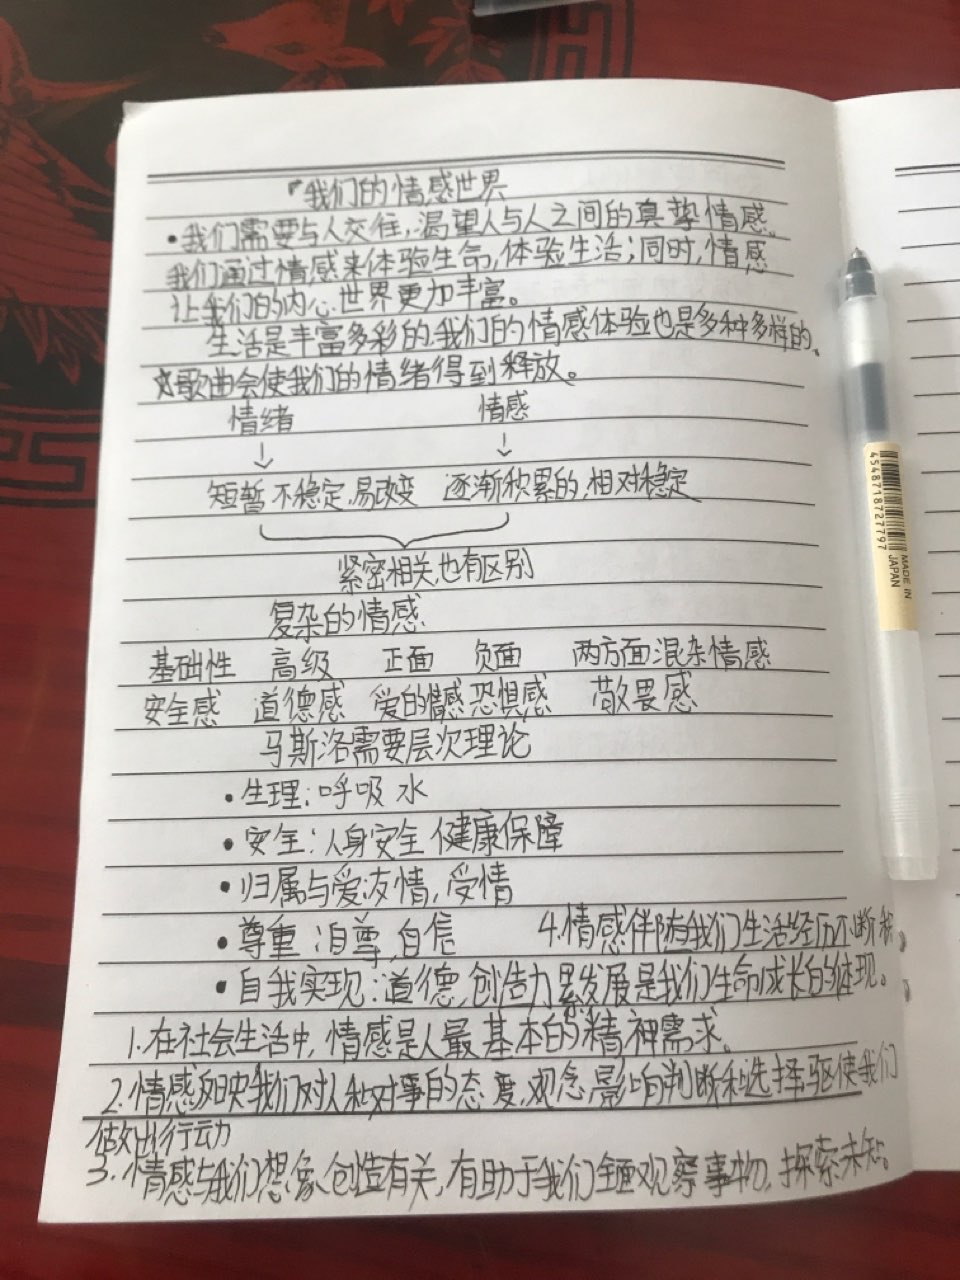 我们的情感世界
•我们需要与人交往,渴望人与人之间的真挚情感。
我们通过情感来体验生命,体验生活;同时,情感
让我们的内心世界更加丰富。
生活是丰富多彩的,我们的情感体验也是多种多样的。
☆歌曲会使我们的情绪得到释放。
情绪 情感
↓ ↓
短暂 不稳定,易改变 逐渐积累的,相对稳定
紧密相关,也有区别
复杂的情感
基础性 高级 正面 负面 两方面混杂情感
安全感 道德感 爱的情感 恐惧感 敬畏感
马斯洛需要层次理论
•生理:呼吸 水
•安全:人身安全 健康保障
•归属与爱:友情,爱情
•尊重:自尊,自信
•自我实现:道德,创造力
4.情感伴随我们生活经历不断积
累发展是我们生命成长的体现。
1.在社会生活中,情感是人最基本的精神需求。
2.情感反映我们对人和对事的态度,观念,影响判断和选择,驱使我们
做出行动
3.情感与我们想象,创造有关,有助于我们全面观察事物,探索未知。
4548718727797
MADE IN
JAPAN